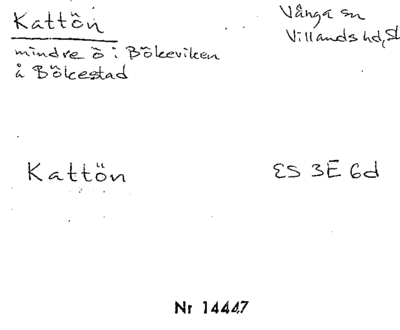 Kattön
Vånga sn
Villands hd, Sk
mindre ö i Bökeviken
å Bökestad
Kattön
ES 3E 6d
Nr 14447